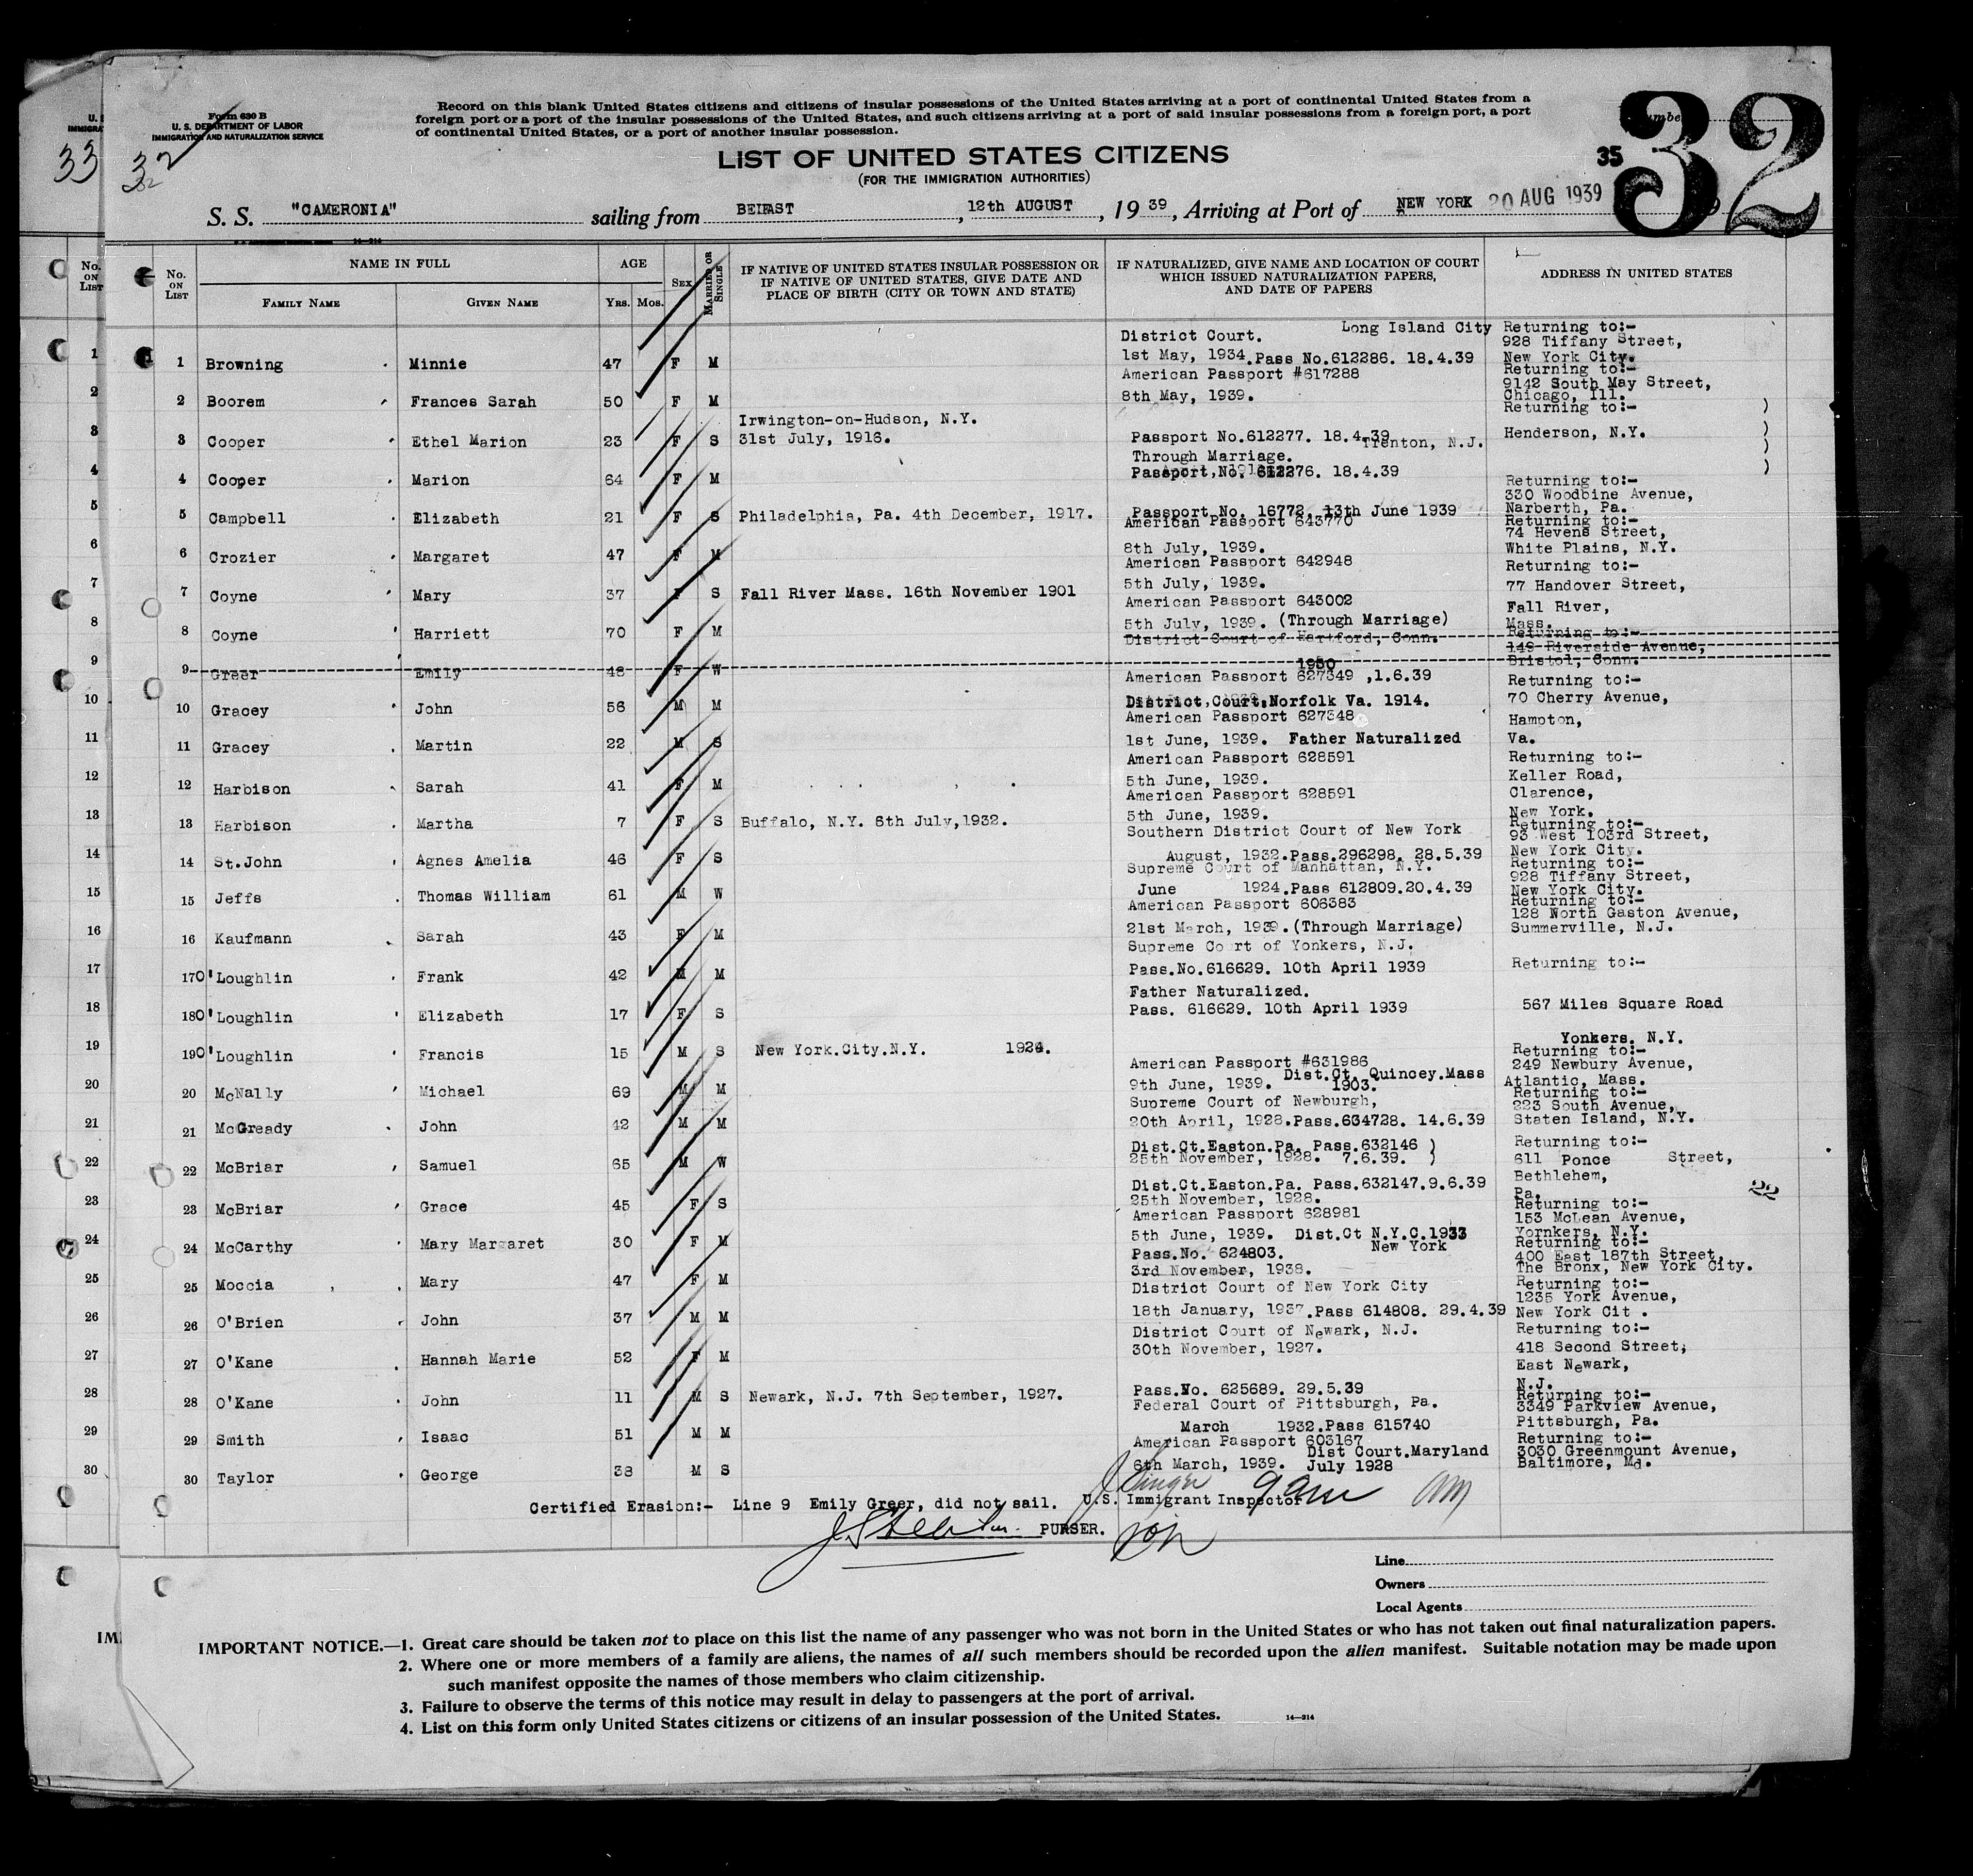 Form 630 B
U. S. DEPARTMENT OF LABOR
IMMIGRATION AND NATURALIZATION SERVICE
33
32
Record on this blank United States citizens and citizens of insular possessions of the United States arriving at a port of continental United States from a
foreign port or a port of the insular possessions of the United States, and such citizens arriving at a port of said insular possessions from a foreign port, a port
of continental United States, or a port of another insular possession.
LIST OF UNITED STATES CITIZENS
(FOR THE IMMIGRATION AUTHORITIES)
35
32
S. S. "CAMERONIA" sailing from BELFAST, 12th AUGUST, 19 39, Arriving at Port of NEW YORK 20 AUG 1939
No. ON LIST
NAME IN FULL
FAMILY NAME GIVEN NAME
AGE
Yrs. Mos.
SEX
MARRIED OR SINGLE
IF NATIVE OF UNITED STATES INSULAR POSSESSION OR
IF NATIVE OF UNITED STATES, GIVE DATE AND
PLACE OF BIRTH (CITY OR TOWN AND STATE)
IF NATURALIZED, GIVE NAME AND LOCATION OF COURT
WHICH ISSUED NATURALIZATION PAPERS,
AND DATE OF PAPERS
ADDRESS IN UNITED STATES
District Court. Long Island City Returning to:-
928 Tiffany Street,
1 Browning Minnie 47 F M 1st May, 1934. Pass No.612286. 18.4.39 New York City.
American Passport #617288 Returning to:-
9142 South May Street,
2 Boorem Frances Sarah 50 F M 8th May, 1939. Chicago, Ill.
Irwington-on-Hudson, N.Y. Returning to:-
3 Cooper Ethel Marion 23 F S 31st July, 1916. Passport No.612277. 18.4.39 Henderson, N.Y.
Trenton, N.J.
Through Marriage.
4 Cooper Marion 64 F M Passport, No. 612276. 18.4.39
Returning to:-
330 Woodbine Avenue,
5 Campbell Elizabeth 21 F S Philadelphia, Pa. 4th December, 1917. Passport No. 16772, 13th June 1939 Narberth, Pa.
American Passport 643770 Returning to:-
74 Hevens Street,
6 Crozier Margaret 47 F M 8th July, 1939. White Plains, N.Y.
American Passport 642948 Returning to:-
7 Coyne Mary 37 F S Fall River Mass. 16th November 1901 5th July, 1939. 77 Handover Street,
American Passport 643002 Fall River,
8 Coyne Harriett 70 F M 5th July, 1939. (Through Marriage) Mass.
District Court of Hartford, Conn. Returning to:-
149 Riverside Avenue,
9 Greer Emily 48 F W 1930 Bristol, Conn.
American Passport 627349 ,1.6.39 Returning to:-
10 Gracey John 56 M M District Court, Norfolk Va. 1914. 70 Cherry Avenue,
American Passport 627348 Hampton,
11 Gracey Martin 22 M S 1st June, 1939. Father Naturalized Va.
American Passport 628591 Returning to:-
12 Harbison Sarah 41 F M 5th June, 1939. Keller Road,
American Passport 628591 Clarence,
13 Harbison Martha 7 F S Buffalo, N.Y. 6th July,1932. 5th June, 1939. New York.
Southern District Court of New York Returning to:-
93 West 103rd Street,
14 St.John Agnes Amelia 46 F S August, 1932.Pass.296298. 28.5.39 New York City.
Supreme Court of Manhattan, N.Y. Returning to:-
928 Tiffany Street,
15 Jeffs Thomas William 61 M W June 1924.Pass 612809.20.4.39 New York City.
American Passport 606383 Returning to:-
128 North Gaston Avenue,
16 Kaufmann Sarah 43 F M 21st March, 1939.(Through Marriage) Summerville, N.J.
Supreme Co rt of Yonkers, N.J.
17 O'Loughlin Frank 42 M M Pass.No.616629. 10th April 1939 Returning to:-
Father Naturalized.
18 O'Loughlin Elizabeth 17 F S Pass. 616629. 10th April 1939 567 Miles Square Road
19 O'Loughlin Francis 15 M S New York.City.N.Y. 1924. Yonkers. N.Y.
American Passport #631986 Returning to:-
249 Newbury Avenue,
20 McNally Michael 69 M M 9th June, 1939. Dist.Ct. Quincey.Mass 1903. Atlantic, Mass.
Supreme Court of Newburgh, Returning to:-
223 South Avenue,
21 McGready John 42 M M 20th April, 1928.Pass.634728. 14.6.39 Staten Island, N.Y.
Dist.Ct.Easton.Pa. Pass.632146 ) Returning to:-
22 McBriar Samuel 65 M W 25th November, 1928. 7.6.39. ) 611 Ponce Street,
Dist.Ct.Easton.Pa. Pass.632147.9.6.39 Bethlehem,
22
23 McBriar Grace 45 F S 25th November, 1928. Pa.
American Passport 628981 Returning to:-
153 McLean Avenue,
24 McCarthy Mary Margaret 30 F M 5th June, 1939. Dist.Ct N.Y.C.1933 Yornkers, N.Y.
Pass.No. 624803. New York Returning to:-
400 East 187th Street,
25 Moccia Mary 47 F M 3rd November, 1938. The Bronx, New York City.
District Court of New York City Returning to:-
1235 York Avenue,
26 O'Brien John 37 M M 18th January, 1937.Pass 614808. 29.4.39 New York Cit .
District Court of Newark, N.J. Returning to:-
27 O'Kane Hannah Marie 52 F M 30th November, 1927. 418 Second Street;
East Newark,
28 O'Kane John 11 M S Newark, N.J. 7th September, 1927. Pass.No. 625689. 29.5.39 N.J.
Federal Court of Pittsburgh, Pa. Returning to:-
3349 Parkview Avenue,
29 Smith Isaac 51 M M March 1932.Pass 615740 Pittsburgh, Pa.
American Passport 603167 Returning to:-
Dist Court.Maryland 3030 Greenmount Avenue,
30 Taylor George 38 M S 6th March, 1939. July 1928 Baltimore, Md.
Certified Erasion:- Line 9 Emily Greer, did not sail. U.S. Immigrant Inspector
PURSER.
Line
Owners
Local Agents
IMPORTANT NOTICE.—1. Great care should be taken not to place on this list the name of any passenger who was not born in the United States or who has not taken out final naturalization papers.
2. Where one or more members of a family are aliens, the names of all such members should be recorded upon the alien manifest. Suitable notation may be made upon
such manifest opposite the names of those members who claim citizenship.
3. Failure to observe the terms of this notice may result in delay to passengers at the port of arrival.
4. List on this form only United States citizens or citizens of an insular possession of the United States.
14—214